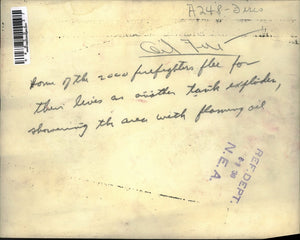 A248-Fires
Oil Fires
Some of the 2000 firefighters flee for
their lives as another tank explodes,
showering the area with flaming oil
REF. DEPT.
N. E. A.